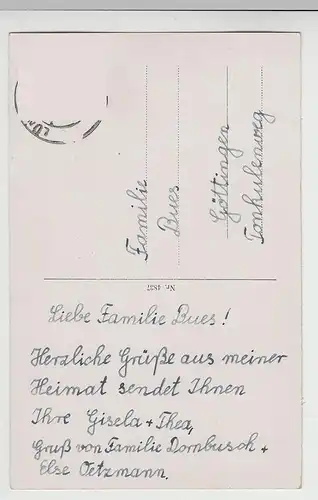 Familie
Bues
Göttingen
Tonkuhlenweg
Nr. 4837
Liebe Familie Bues!
Herzliche Grüße aus meiner
Heimat sendet Ihnen
Ihre Gisela + Thea,
Gruß von Familie Dornbusch +
Else Oetzmann.